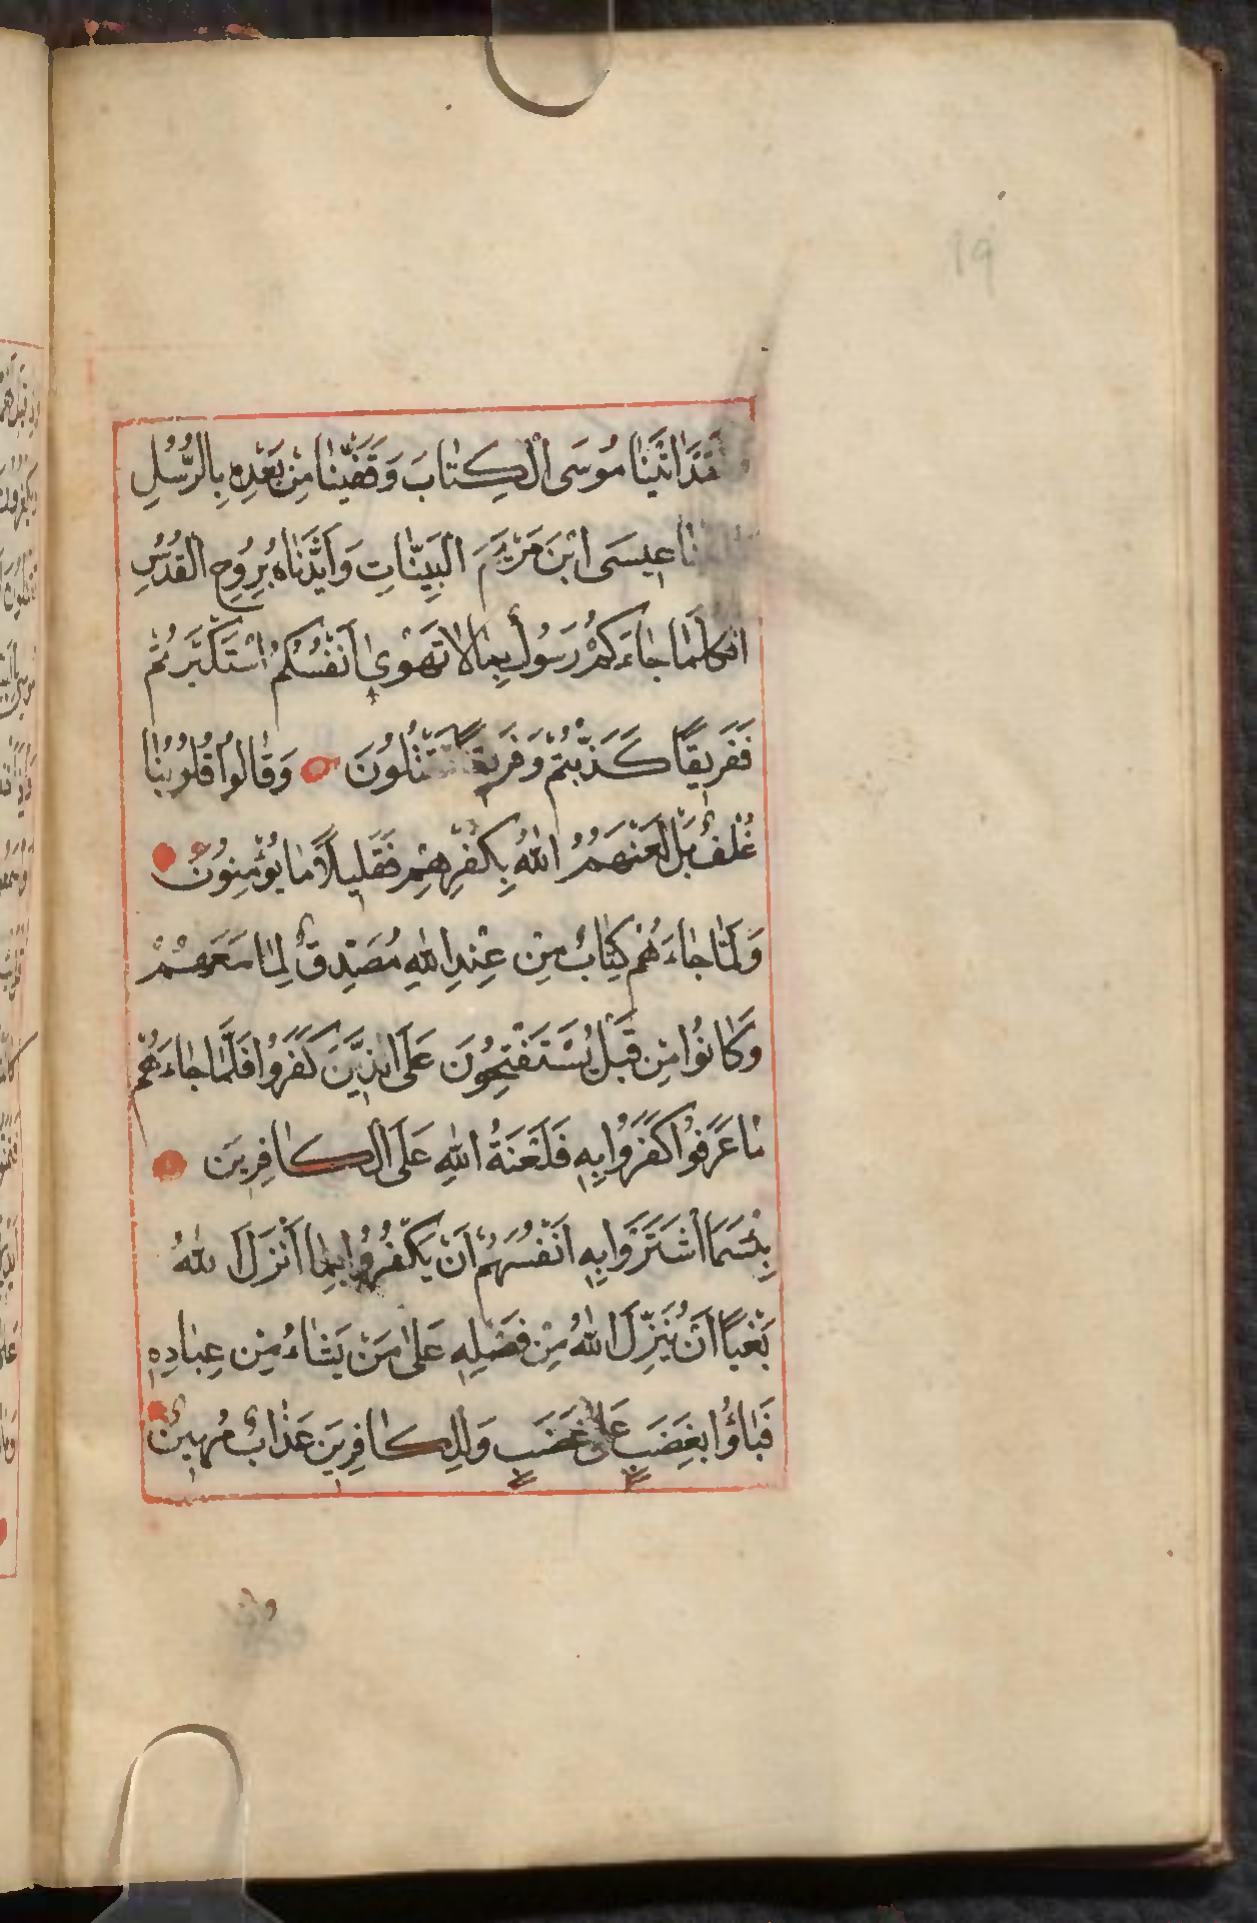 19
اٰتَيْنَا مُوسَى الْكِتَابَ وَقَفَّيْنَا مِنْ بَعْدِهِ بِالرُّسُلِ
عِيسَى ابْنَ مَرْيَمَ الْبَيِّنَاتِ وَاَيَّدْنَاهُ بِرُوحِ الْقُدُسِ
اَفَكُلَّمَا جَاءَكُمْ رَسُولٌ بِمَا لَا تَهْوٰى اَنْفُسُكُمُ اسْتَكْبَرْتُمْ
فَفَرِيقًا كَذَّبْتُمْ وَفَرِيقًا تَقْتُلُونَ وَقَالُوا قُلُوبُنَا
غُلْفٌ بَلْ لَعَنَهُمُ اللّٰهُ بِكُفْرِهِمْ فَقَلِيلًا مَا يُؤْمِنُونَ
وَلَمَّا جَاءَهُمْ كِتَابٌ مِنْ عِنْدِ اللّٰهِ مُصَدِّقٌ لِمَا مَعَهُمْ
وَكَانُوا مِنْ قَبْلُ يَسْتَفْتِحُونَ عَلَى الَّذِينَ كَفَرُوا فَلَمَّا جَاءَهُمْ
مَا عَرَفُوا كَفَرُوا بِهِ فَلَعْنَةُ اللّٰهِ عَلَى الْكَافِرِينَ
بِئْسَمَا اشْتَرَوْا بِهِ اَنْفُسَهُمْ اَنْ يَكْفُرُوا بِمَا اَنْزَلَ اللّٰهُ
بَغْيًا اَنْ يُنَزِّلَ اللّٰهُ مِنْ فَضْلِهِ عَلٰى مَنْ يَشَاءُ مِنْ عِبَادِهِ
فَبَاؤُا بِغَضَبٍ عَلٰى غَضَبٍ وَلِلْكَافِرِينَ عَذَابٌ مُهِينٌ